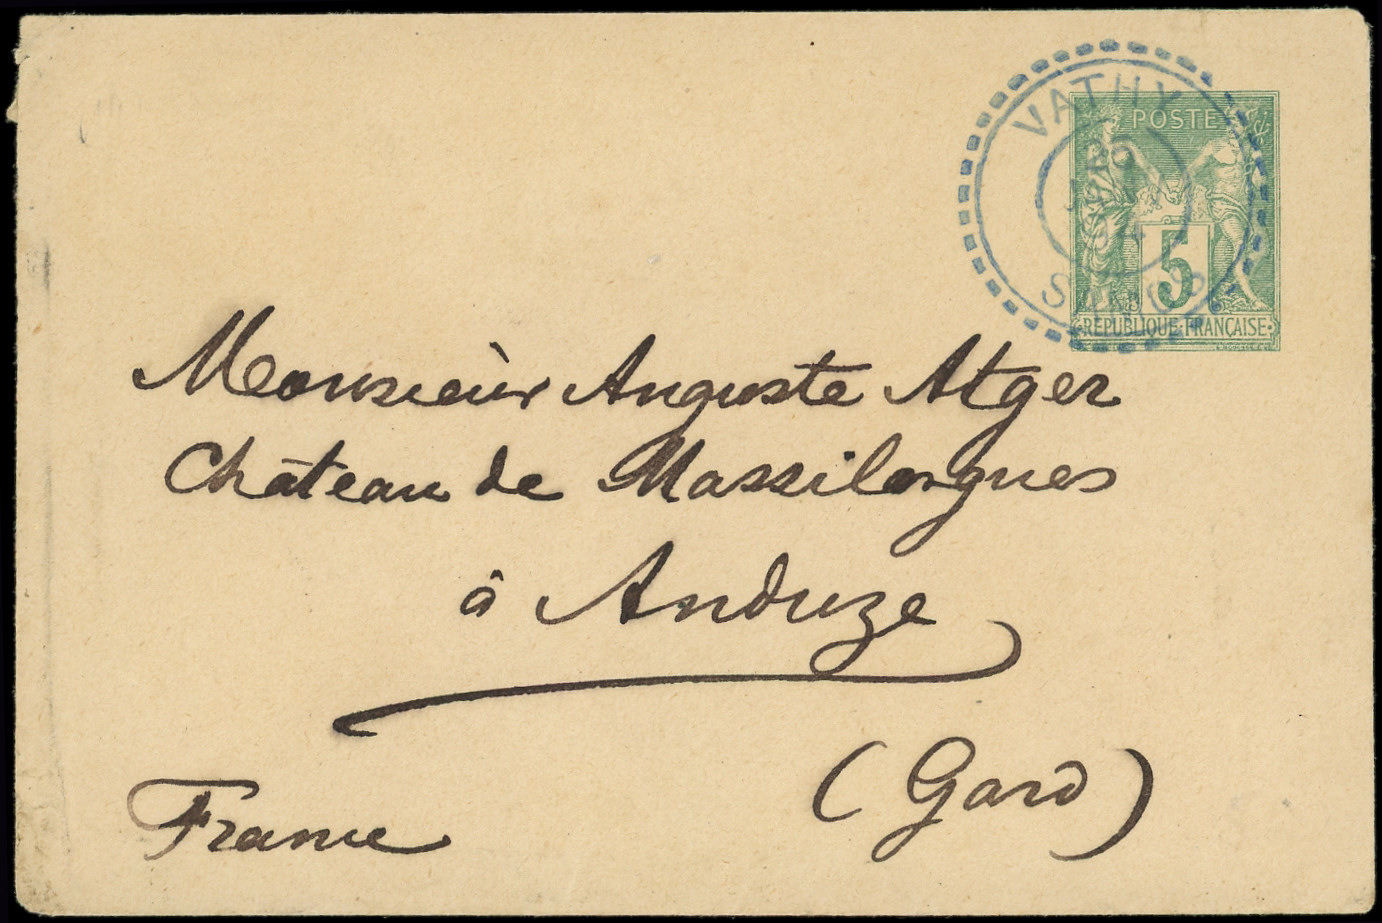 VATHY
POSTE
5
SAMOS
REPUBLIQUE·FRANÇAISE
Monsieur Auguste Atger
Château de Massilargues
à Anduze
(Gard)
France